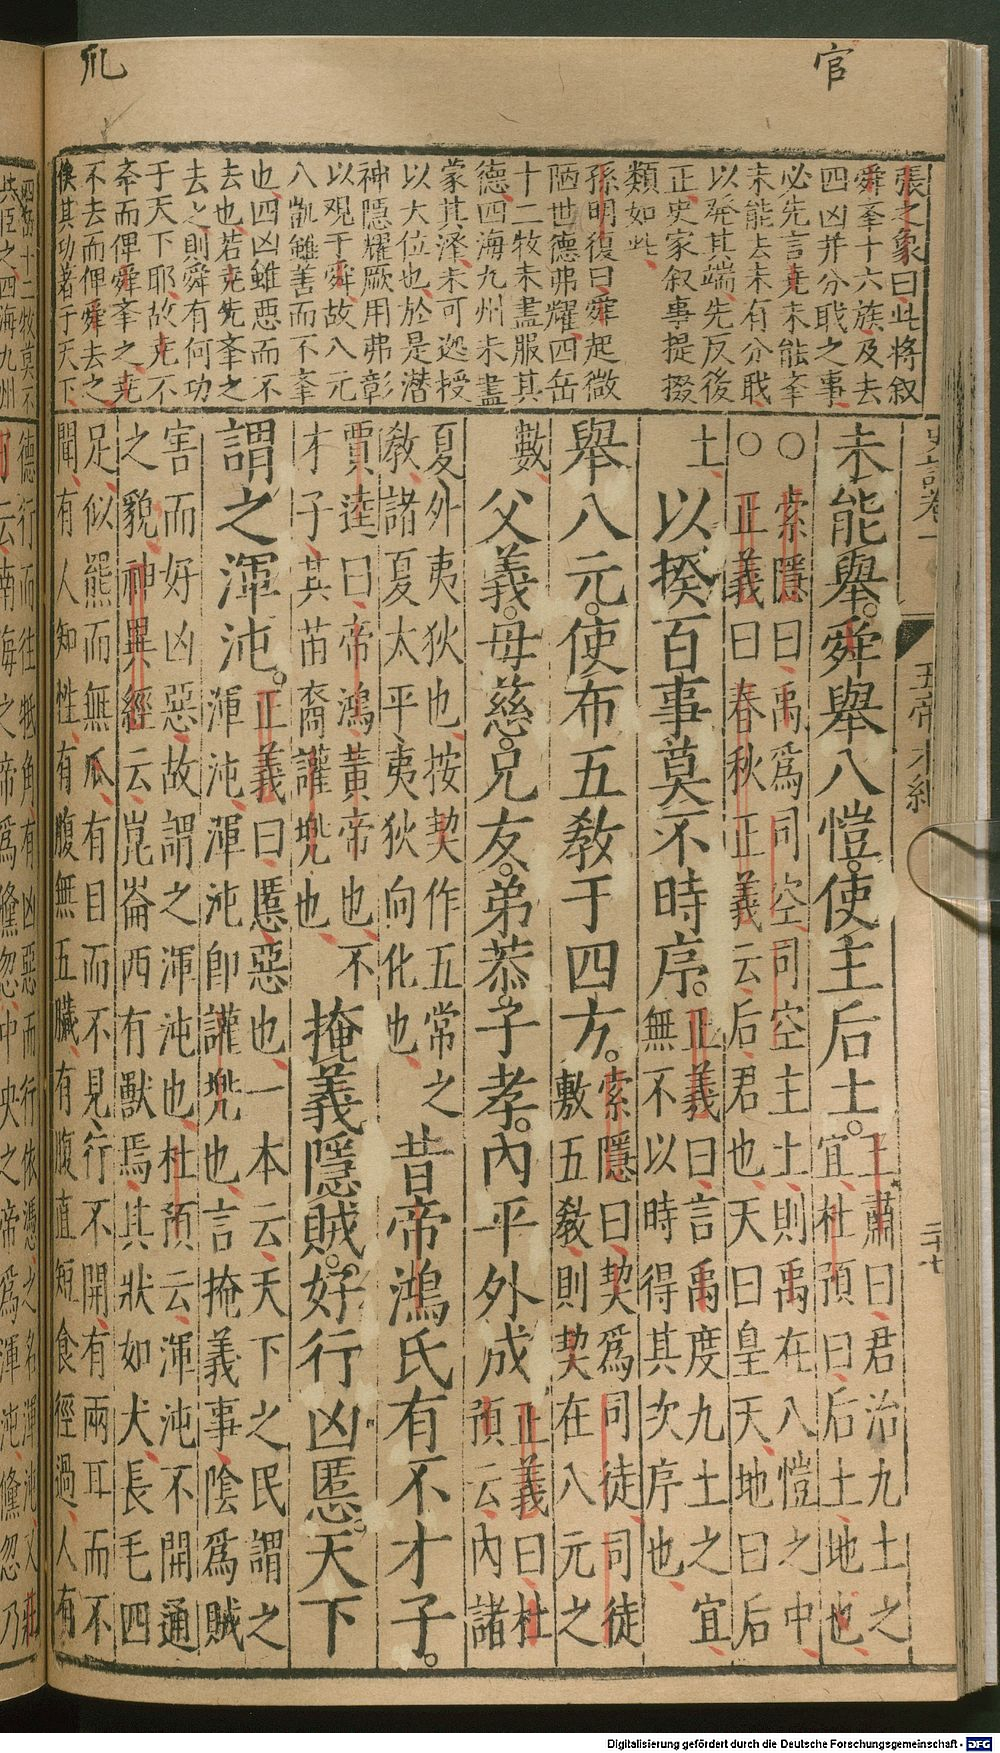 官
張之象曰此將叙
舜㪯十六族及去
四凶并分職之事
必先言堯未能㪯
未能去未有分職
以發其端先反後
正史家叙事提掇
類如此
孫明復曰舜起微
陋世德弗耀四岳
十二牧未盡服其
德四海九州未盡
蒙其澤未可遽授
以大位也於是潜
神隱耀厥用弗彰
以观于舜故八元
八凱雖善而不㪯
也四凶雖悪而不
去也若堯先㪯之
去之則舜有何功
于天下耶故堯不
㪯而俾舜㪯之堯
不去而俾舜去之
俟其功著于天下
史記卷一
五帝本紀
二十七
未能舉舜舉八愷使主后土王肅曰君治九土之
宜杜預曰后土地也
○索隱曰禹爲司空司空主土則禹在八愷之中
○正義曰春秋正義云后君也天曰皇天地曰后
土以揆百事莫不時序正義曰言禹度九土之宜
無不以時得其次序也
舉八元使布五敎于四方索隱曰契爲司徒司徒
敷五敎則契在八元之
數父義母慈兄友弟恭子孝內平外成正義曰杜
預云內諸
夏外夷狄也按契作五常之
敎諸夏太平夷狄向化也昔帝鴻氏有不才子
賈逵曰帝鴻黃帝也不
才子其苗裔讙兠也掩義隱賊好行凶慝天下
謂之渾沌正義曰慝惡也一本云天下之民謂之
渾沌渾沌卽讙兠也言掩義事陰爲賊
害而好凶惡故謂之渾沌也杜預云渾沌不開通
之貌神異經云崑崙西有獸焉其狀如犬長毛四
足似羆而無爪有目而不見行不開有兩耳而不
聞有人知性有腹無五臟有腹直短食徑過人有
四岳十二牧莫不
共臣之四海九州
德行而往牴角有凶惡而行依慿之名渾沌又莊
子云南海之帝爲儵忽中央之帝爲渾沌儵忽乃
Digitalisierung gefördert durch die Deutsche Forschungsgemeinschaft - DFG